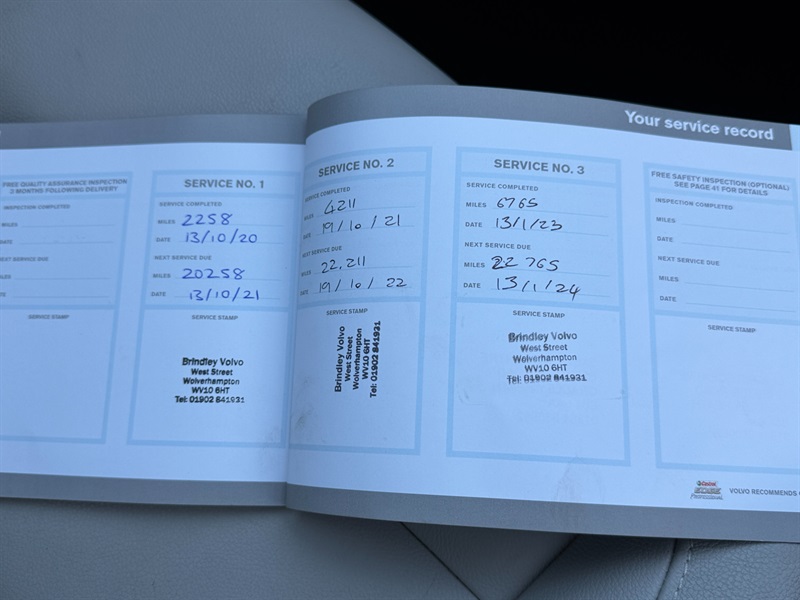 Your service record
FREE QUALITY ASSURANCE INSPECTION
3 MONTHS FOLLOWING DELIVERY
INSPECTION COMPLETED
MILES
DATE
NEXT SERVICE DUE
MILES
DATE
SERVICE STAMP
SERVICE NO. 1
SERVICE COMPLETED
MILES 2258
DATE 13/10/20
NEXT SERVICE DUE
MILES 20258
DATE 13/10/21
SERVICE STAMP
Brindley Volvo
West Street
Wolverhampton
WV10 6HT
Tel: 01902 841931
SERVICE NO. 2
SERVICE COMPLETED
MILES 4211
DATE 19/10/21
NEXT SERVICE DUE
MILES 22,211
DATE 19/10/22
SERVICE STAMP
Brindley Volvo
West Street
Wolverhampton
WV10 6HT
Tel: 01902 841931
SERVICE NO. 3
SERVICE COMPLETED
MILES 6765
DATE 13/1/23
NEXT SERVICE DUE
MILES 22765
DATE 13/1/24
SERVICE STAMP
Brindley Volvo
West Street
Wolverhampton
WV10 6HT
Tel: 01902 841931
FREE SAFETY INSPECTION (OPTIONAL)
SEE PAGE 41 FOR DETAILS
INSPECTION COMPLETED
MILES
DATE
NEXT SERVICE DUE
MILES
DATE
SERVICE STAMP
Castrol
EDGE
PROFESSIONAL
VOLVO RECOMMENDS